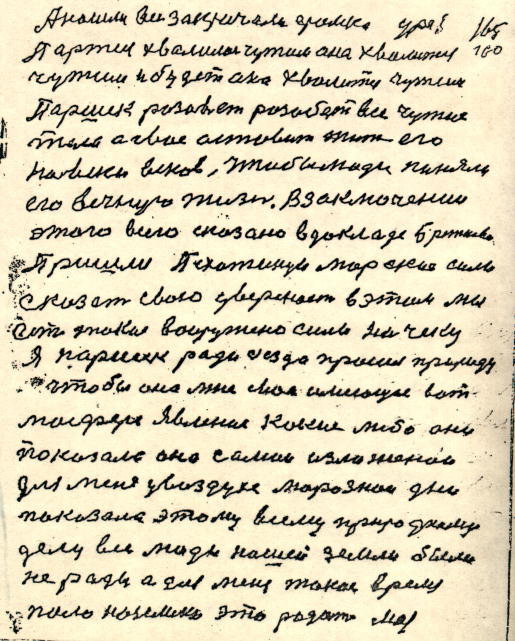 А пошли все закричали громка ура! 165
Партия хвалилась чужим ана хвалится 160
чужим и будет ана хвалится чужим
Паршек розовьет розобьет все чужие
тела а свае оставит жить его
навеки веков, чтобы люди паняли
его вечную жизнь. В заключении
этого всего сказано в докладе Брежнева
Пришли Пехотиную морские силы
сказат свою увереност в этом мы
ест такое вооружоно силы на чеку
Я паршек ради сезда просил природу
чтобы она мне свае имеющие в ат
мосфере явление какие либо они
показала оно самой изложеной
для меня увоздухе морозной дни
показала этому всему природному
делу все люди нашей земли были
не рады а для меня такое время
пало на землю это радость моя